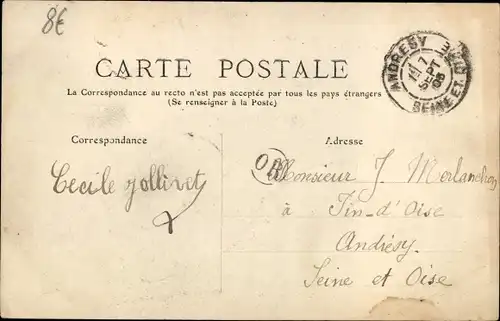 8€
ANDRESY SEINE ET OISE
7
SEPT
08
CARTE POSTALE
La Correspondance au recto n'est pas acceptée par tous les pays étrangers
(Se renseigner à la Poste)
Correspondance
Adresse
Cecile Jollivet
OR
Monsieur J. Morlanchon
à Fin-d'Oise
Andrésy
Seine et Oise